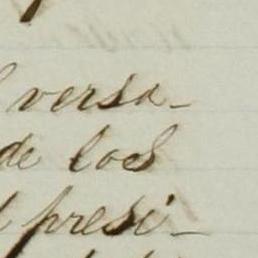 l versa-
de los
l presi-